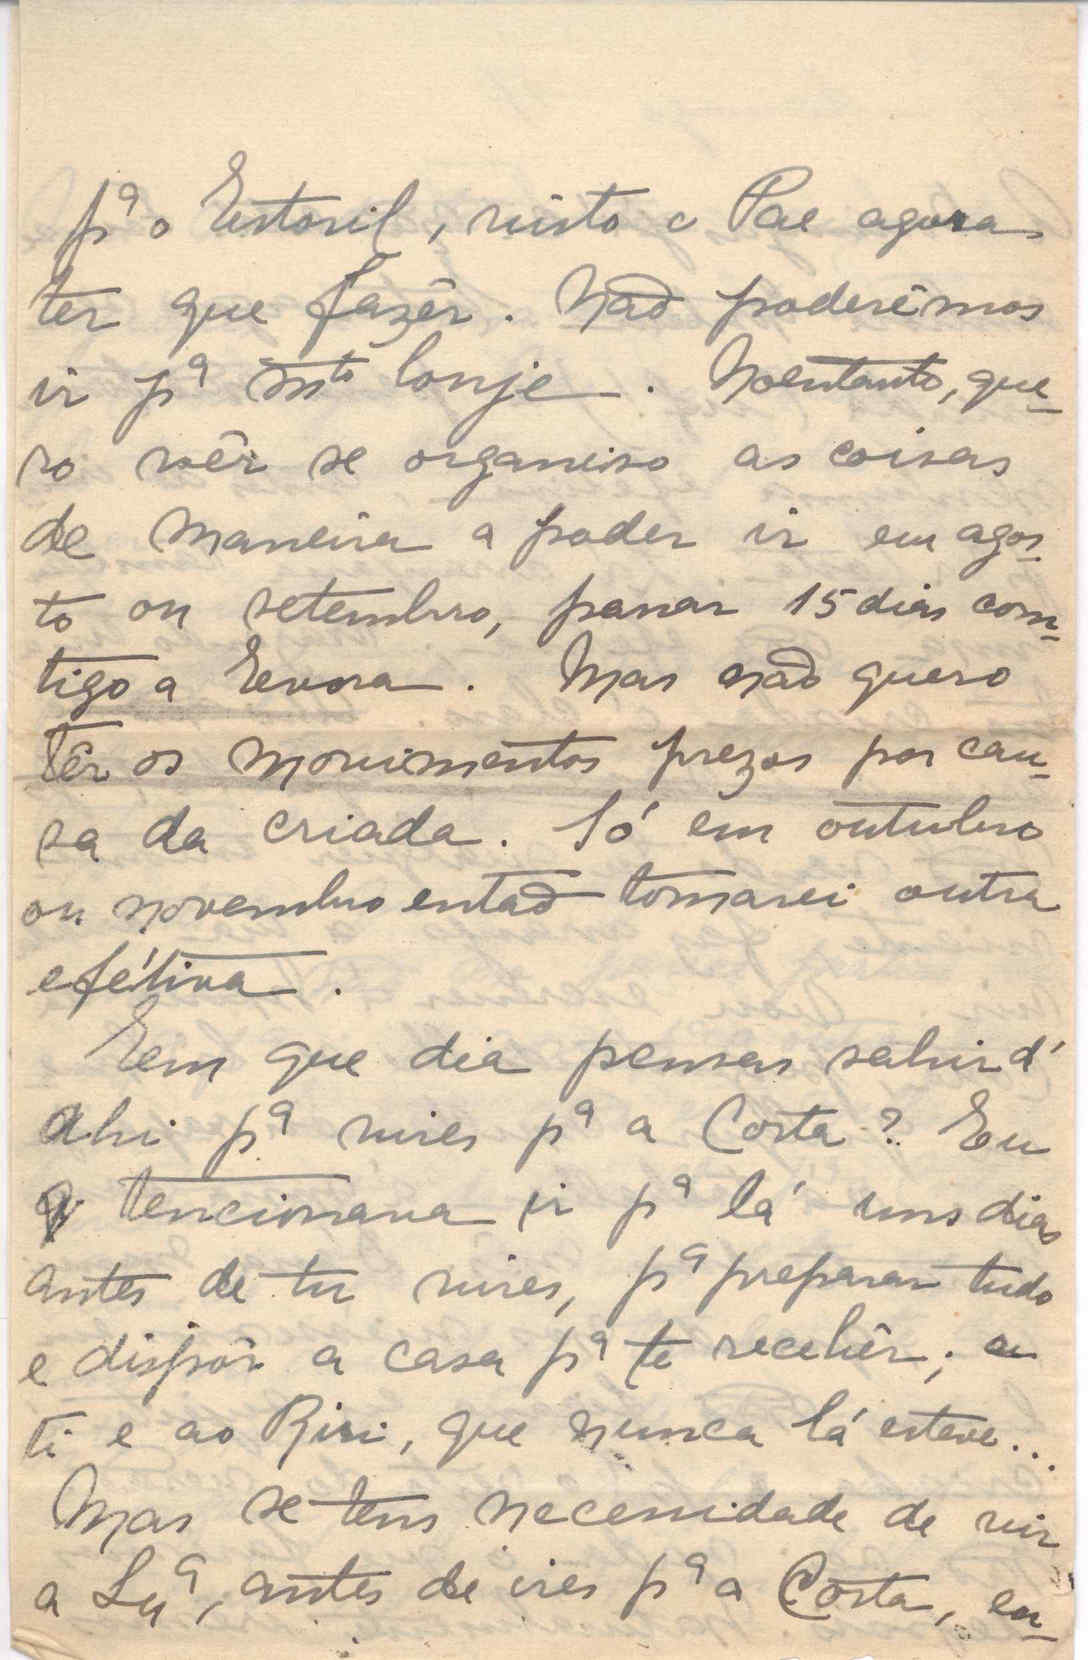 pª o Estoril, visto o Pae agora
ter que fazêr. Não poderêmos
ir pª mto lonje. Noentanto, que-
ro vêr se organiso as coisas
de maneira a poder ir em agos-
to ou setembro, passar 15 dias com-
tigo a Evora. Mas não quero
têr os movimentos prezos por cau-
sa da criada. Só em outubro
ou novembro então tomarei outra
efétiva.
Em que dia pensas sahir d'
ahi pª vires pª a Costa? Eu
tencionava ir pª lá uns dias
antes de tu vires, pª preparar tudo
e dispôr a casa pª te recebêr; a
ti e ao Riri, que nunca lá esteve...
Mas se tens necessidade de vir
a Lxª, antes de ires pª a Costa, en-